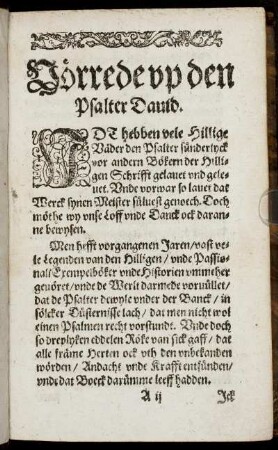 Vörrede vp den
Psalter Dauid.
IDT hebben vele Hillige
Väder den Psalter sünderlyck
vor andern Bökern der Hilli-
gen Schrifft gelauet vnd gele-
uet. Vnde vorwar so lauet dat
Werck synen Meister süluest genoech. Doch
möthe wy vnse Loff vnde Danck ock daran-
ne bewysen.
Men hefft vorgangenen Jaren / vast ve-
le Legenden van den Hilligen / vnde Passio-
nall Exempelböker vnde Historien vmmeher
geuöret / vnde de Werlt darmede voruüllet /
dat de Psalter dewyle vnder der Banck / in
sölcker Düsternisse lach / dat men nicht wol
einen Psalmen recht vorstundt. Vnde doch
so dreplyken eddelen Röke van sick gaff / dat
alle främe Herten ock vth den vnbekanden
wörden / Andacht vnde Krafft entfünden /
vnde dat Boeck darümme leeff hadden.
A ij Ick